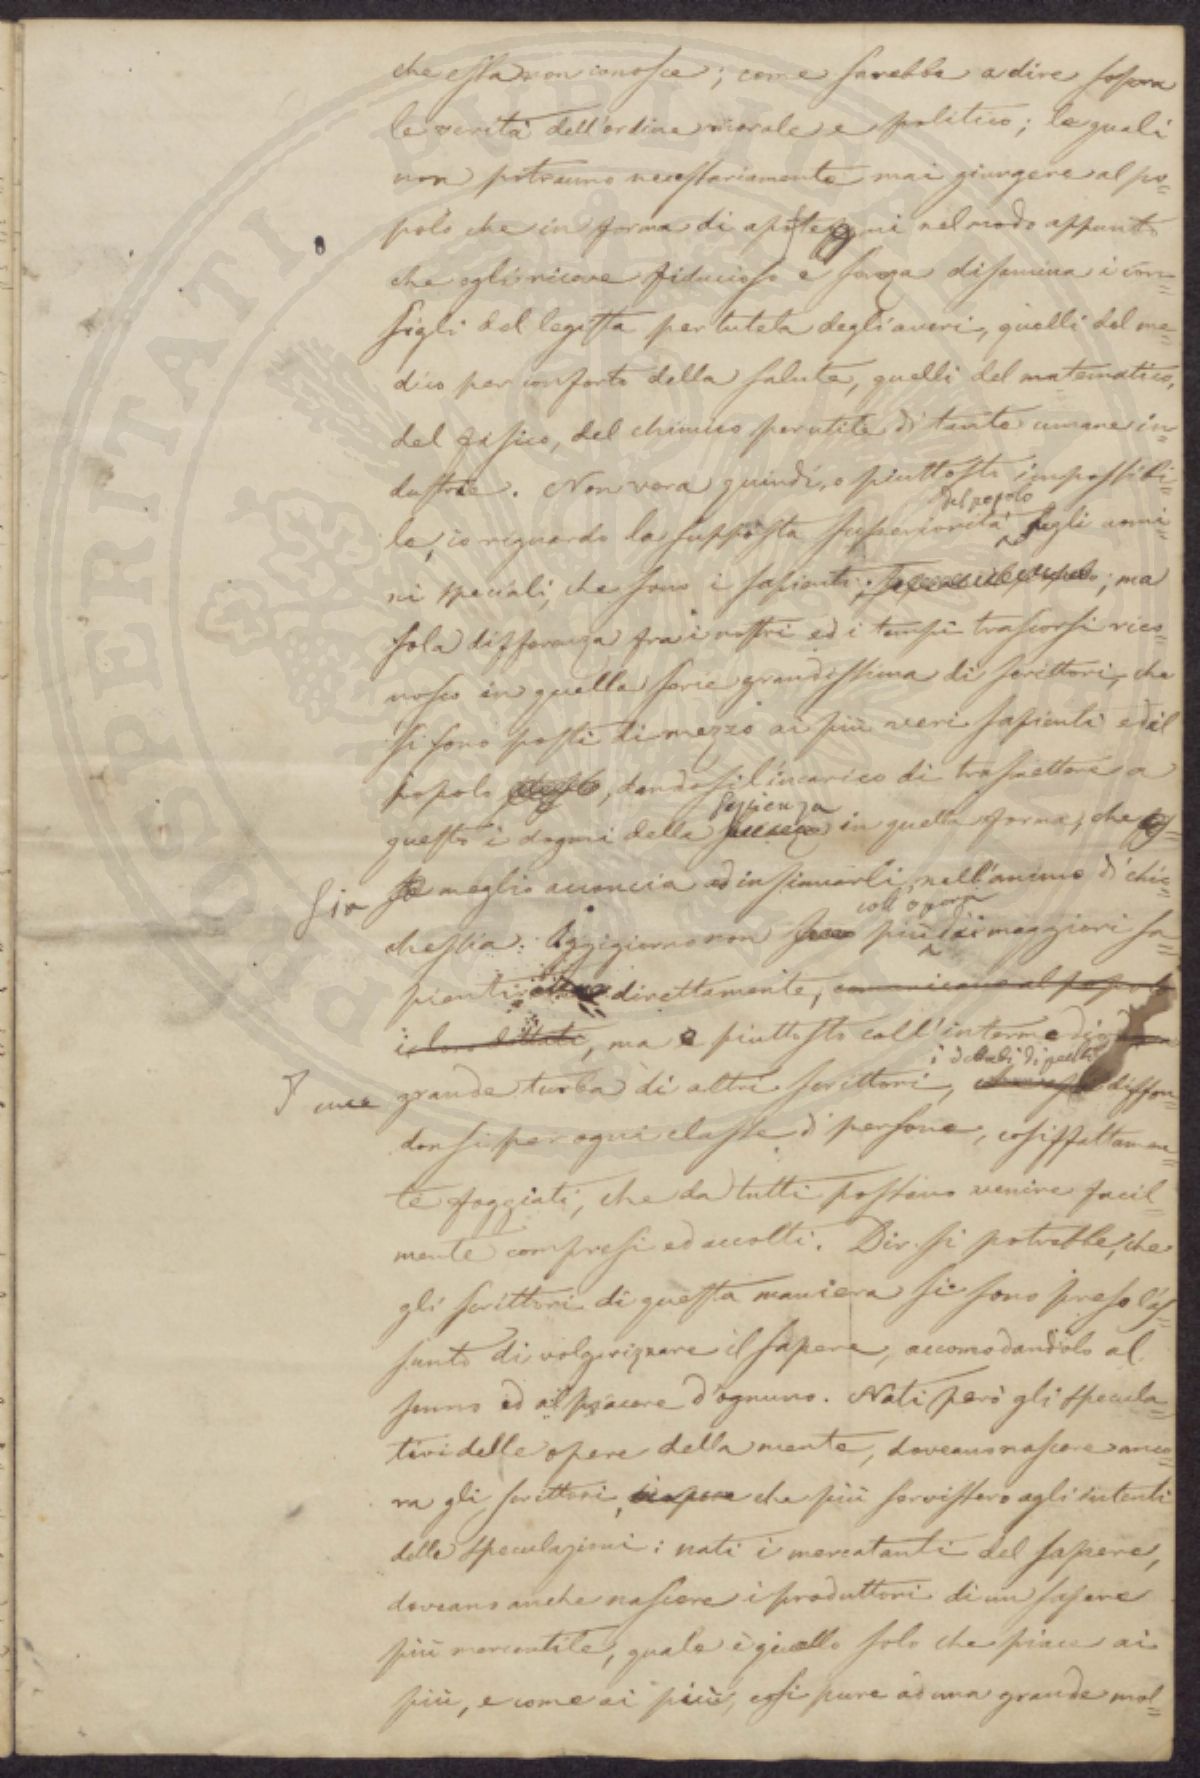 che essa non conosce; come sarebbe a dire sopra
le verità dell'ordine morale e politico; le quali
non potranno necessariamente mai giungere al po=
polo che in forma di apotegmi nel modo appunto
che egli riceve fiducioso e senza disamina i con=
sigli del legista per tutela degli averi, quelli del me=
dico per conforto della salute, quelli del matematico,
del fisico, del chimico per utile di tante umane in=
dustrie. Non vera quindi, o piuttosto impossibi=
del popolo
le, io riguardo la supposta superiorità sugli uomi=
ni speciali, che sono i sapienti; ma
sola differenza fra i nostri ed i tempi trascorsi rico=
nosco in quella serie grandissima di scrittori, che
si sono posti di mezzo ai più veri sapienti ed il
popolo stesso, dandosi l'incarico di trasmettere a
sapienza
questo i dogmi della scienza in quella forma, che
sia meglio acconcia ad insinuarli nell'animo di chic=
coll'opera
chessia. Oggigiorno non più dei maggiori sa=
pienti direttamente, comunicano al popolo
i loro dettati, ma è piuttosto coll'intermedio
i dettati di questi
d'una grande turba di altri scrittori, diffon=
donsi per ogni classe di persone, cosiffattamen=
te foggiati, che da tutti possano venire facil=
mente compresi ed accolti. Dir si potrebbe, che
gli scrittori di questa maniera si sono preso l'as=
sunto di volgarizzare il sapere, accomodandolo al
senno ed al piacere d'ognuno. Nati però gli specula=
tivi delle opere della mente, doveano nascere anco=
ra gli scrittori, che più servissero agli intenti
della speculazioni: nati i mercatanti del sapere,
doveano anche nascere i produttori di un sapere
più mercantile, quale è quello solo che piace ai
più, e come ai più, così pure ad una grande mol=